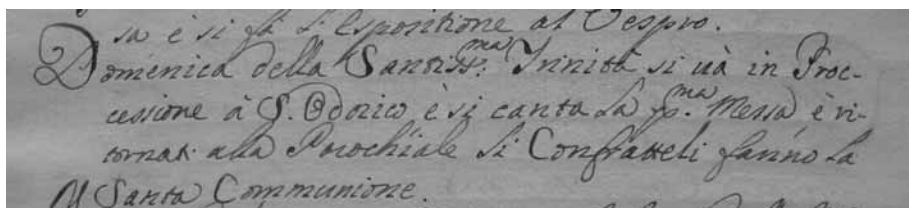 sa è si fà l'Espositione al Vespro.
Domenica della Santiss.ma Trinità si uà in Proc-
cessione à S. Odorico è si canta la p.ma Messa è ri-
tornati alla Parochiale li Confratteli fanno la
Santa Communione.